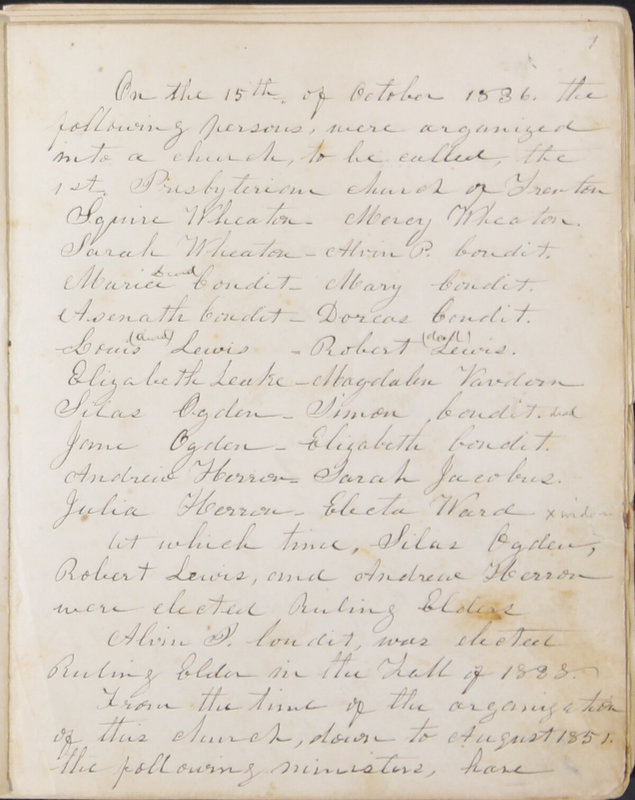 1
On the 15th. of October 1836. the
following persons, were organized
into a church, to be called, the
1st. Presbyterian church of Trenton
Squire Wheaton - Mercy Wheaton.
Sarah Wheaton - Alvin P. Condit.
Maria Condit - Mary Condit.
Asenath Condit - Dorcas Condit.
Louis Lewis - Robert Lewis.
Elizabeth Leake - Magdalen Vandorn
Silas Ogden - Simon Condit.
Jane Ogden - Elizabeth Condit.
Andrew Herron - Sarah Jacobus.
Julia Herron - Electa Ward
At which time, Silas Ogden,
Robert Lewis, and Andrew Herron
were elected Ruling Elders
Alvin P. Condit, was elected
Ruling Elder in the Fall of 1838.
From the time of the organization
of this church, down to August 1851.
the following ministers, have